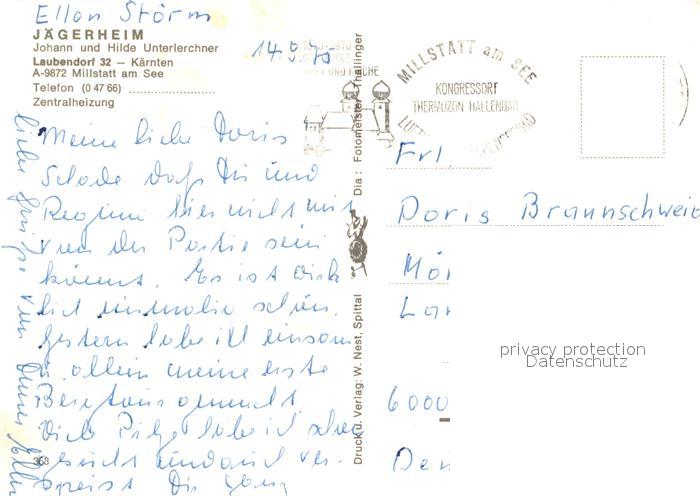 Ellen Störm
JÄGERHEIM
Johann und Hilde Unterlerchner
Laubendorf 32 – Kärnten
A-9872 Millstatt am See
Telefon (0 47 66)
Zentralheizung
14.9.
MILLSTATT am SEE
KONGRESSORT
THERMOZON HALLENBAD
Meine liebe Doris
Schade daß Du und
Regina hier nicht mit
von der Partie sein
könnt. Es ist wirk
lich schön.
Gestern habe ich einsam
u. allein meine erste
Bergtour gemacht
Viele Pilze habe ich schon
gesucht und auch ver-
speist Dir ganz
liebe Grüße von Deiner Ellen
368
Druck u. Verlag: W. Nest, Spittal
Dia: Fotomeister Thallinger
Frl
Doris Braunschweig
Mör
Lan
6000
privacy protection
Datenschutz